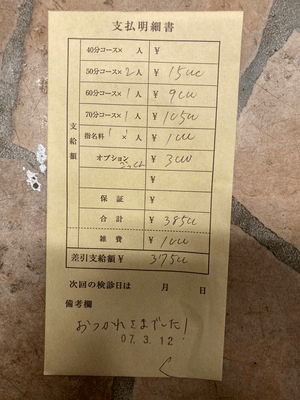 支払明細書
40分コース× 人 ¥
50分コース×2人 ¥ 15000
60分コース×1人 ¥ 9000
70分コース×1人 ¥ 10500
指名料 1×1人 ¥ 1000
オプション ¥ 3000
¥
保証 ¥
合計 ¥ 38500
雑費 ¥ 1000
差引支給額 ¥ 37500
支給額
次回の検診日は 月 日
備考欄
おつかれさまでした!
07. 3. 12